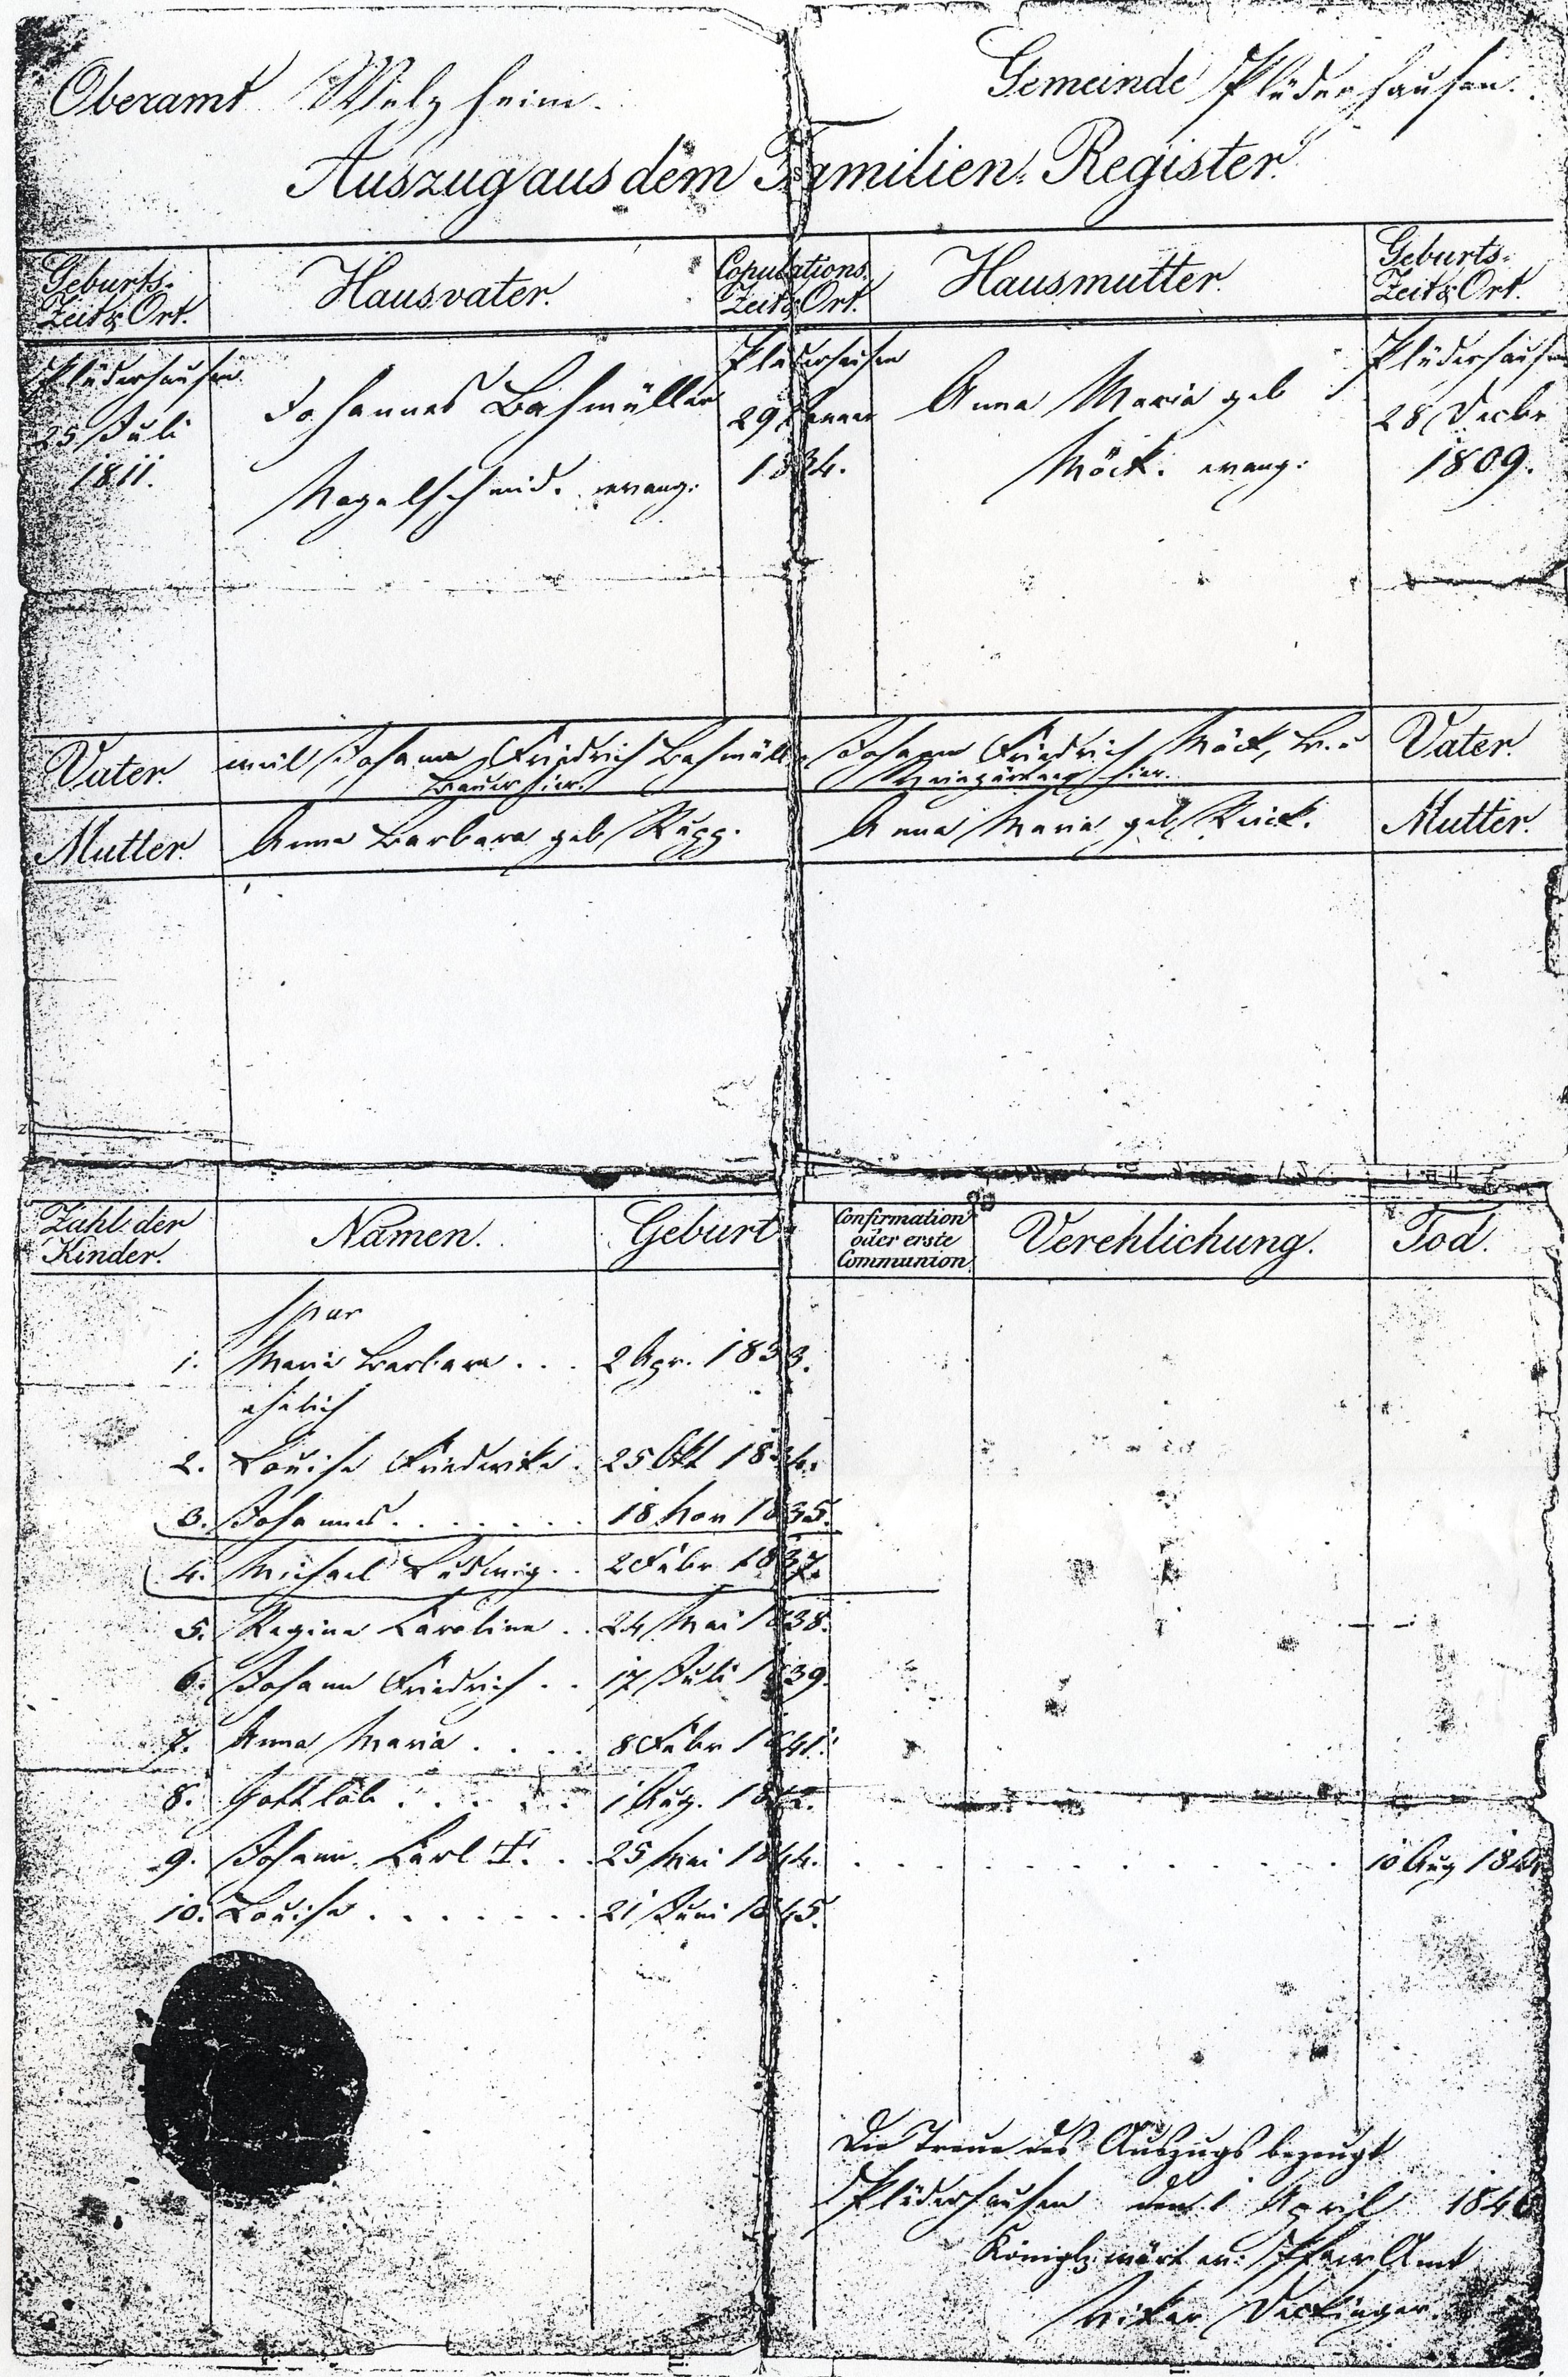 Oberamt Welzheim.
Gemeinde Plüderhausen.
Auszug aus dem Familien-Register.
Geburts-
Zeit & Ort.
Hausvater.
Copulations
Zeit & Ort.
Hausmutter.
Geburts-
Zeit & Ort.
Plüderhausen
25 Juli
1811.
Johannes Bahmüller
Nagelschmid. evang.
Plüderhausen
29 Jenner
1834.
Anna Maria geb
Möck. evang.
Plüderhausen
28 Decbr
1809.
Vater.
weil Johann Friedrich Bahmüller
Bauer hier.
Johann Friedrich Möck, B. u
Weingärtner hier.
Vater.
Mutter.
Anna Barbara geb Rupp.
Anna Maria geb
Mutter.
Zahl der
Kinder.
Namen.
Geburt
Confirmation
oder erste
Communion
Verehlichung.
Tod.
spur
1. Maria Barbara . . . 2 Apr. 1833.
ehelich
2. Louise Friederike . 25 Okt 1834.
3. Johannes . . . . . . 18 Nov 1835.
4. Michael Ludwig . . 2 Febr 1837.
5. Regina Karoline . . 24 Mai 1838.
6. Johann Friedrich . . 17 Juli 1839.
7. Anna Maria . . . . 8 Febr 1841.
8. Gottlob . . . . . 1 Aug. 1842.
9. Johann Karl † . . 25 Mai 1844. . . . . . . . . . . . . 10 Aug 184
10. Louise . . . . . . . 21 Juni 1845.
Die Treue des Auszugs bezeugt
Plüderhausen den 1 April 1846
Königl. württ ev. Pfarr Amt
Vikar Deckinger.